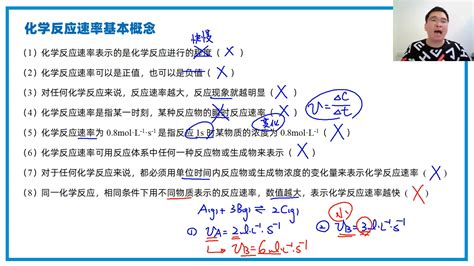 化学反应速率基本概念
快慢
（1）化学反应速率表示的是化学反应进行的限度（ X ）
（2）化学反应速率可以是正值，也可以是负值（ X ）
（3）对任何化学反应来说，反应速率越大，反应现象就越明显（ X ）
（4）化学反应速率是指某一时刻，某种反应物的瞬时反应速率（ X ）
v=ΔC/Δt
变化
（5）化学反应速率为 0.8mol·L-1·s-1 是指反应 1s 时某物质的浓度为 0.8mol·L-1（ X ）
（6）化学反应速率可用反应体系中任何一种反应物或生成物来表示（ X ）
（7）对于任何化学反应来说，都必须用单位时间内反应物或生成物浓度的变化量来表示化学反应速率（ X ）
（8）同一化学反应，相同条件下用不同物质表示的反应速率，数值越大，表示化学反应速率越快（ X ）
A(g)+3B(g)⇌2C(g)
① vA=2mol·L-1·s-1
② vB=3mol·L-1·s-1
↳ vB=6mol·L-1·s-1